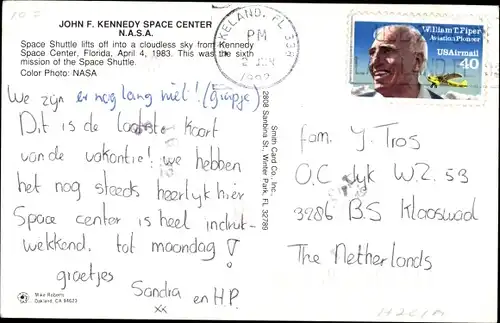 10.=
JOHN F. KENNEDY SPACE CENTER
N.A.S.A.
Space Shuttle lifts off into a cloudless sky from Kennedy
Space Center, Florida, April 4, 1983. This was the sixth
mission of the Space Shuttle.
Color Photo: NASA
LAKELAND, FL 338
PM
2 JUN
1992
William T. Piper
Aviation Pioneer
USAirmail
40
We zijn er nog lang niet! (grapje)
Dit is de laatste kaart
van de vakantie! we hebben
het nog steeds heerlijk hier
Space center is heel indruk-
wekkend. tot maandag!
groetjes
Sandra en H.P.
xx
Mike Roberts
Oakland, CA 94623
Smith Card Co., Inc.,
2808 Sanbina St., Winter Park, FL 32789
fam. Y. Tros
O.C. dyk W.Z. 53
3286 B.S Klaaswad
The Netherlands